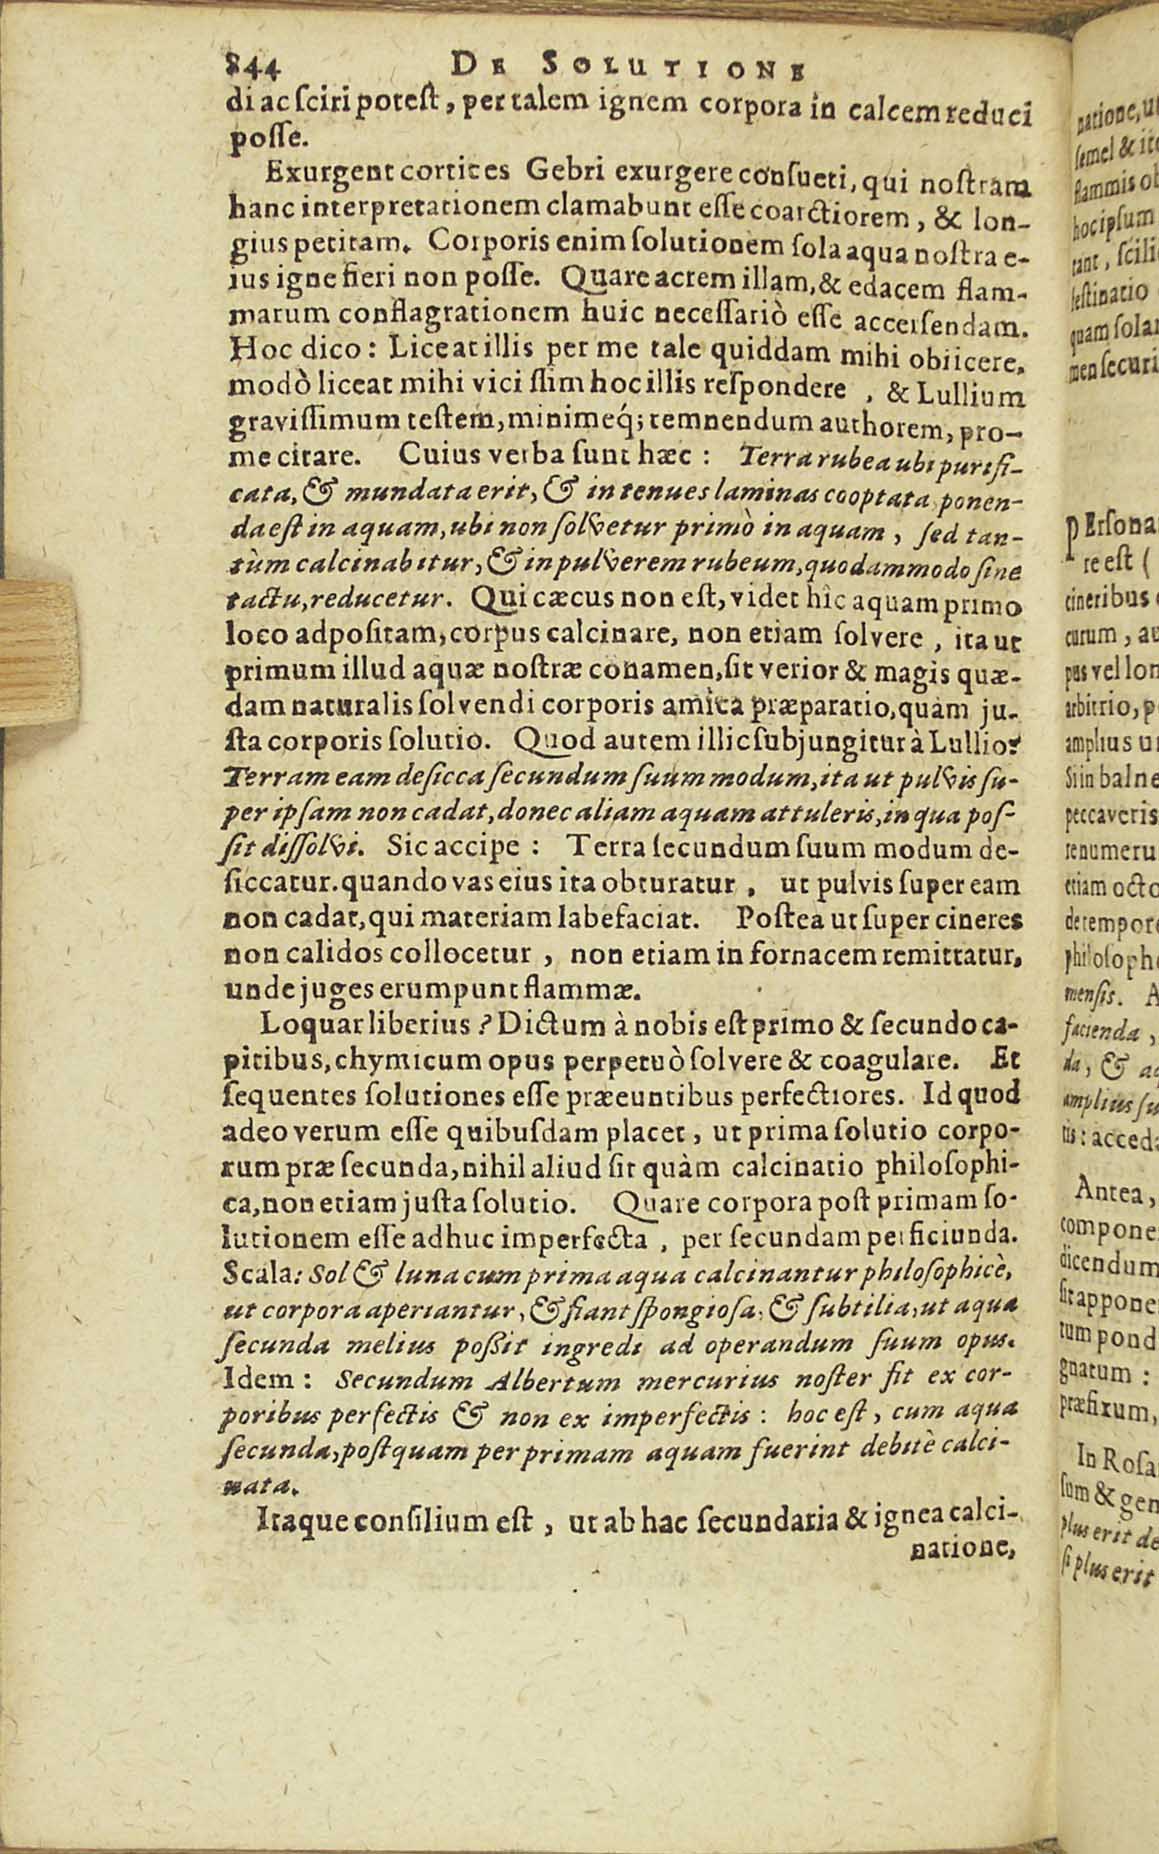 844 DE SOLUTIONE
di ac sciri potest, per talem ignem corpora in calcem reduci
posse.
Exurgent cortices Gebri exurgere consueti, qui nostram
hanc interpretationem clamabunt esse coarctiorem, & lon-
gius petitam. Corporis enim solutionem sola aqua nostra e-
ius igne fieri non posse. Quare acrem illam, & edacem flam-
marum conflagrationem huic necessariò esse accersendam.
Hoc dico: Liceat illis per me tale quiddam mihi obiicere,
modò liceat mihi vicissim hoc illis respondere, & Lullium
gravissimum testem, minimeq́; temnendum authorem, pro-
me citare. Cuius verba sunt hæc: Terra rubea ubi purifi-
cata, & mundata erit, & in tenues laminas cooptata ponen-
da est in aquam, ubi non solvetur primò in aquam, sed tan-
tùm calcinabitur, & in pulverem rubeum, quodammodo sine
tactu, reducetur. Qui cæcus non est, videt hîc aquam primo
loco adpositam, corpus calcinare, non etiam solvere, ita ut
primum illud aquæ nostræ conamen, sit verior & magis quæ-
dam naturalis solvendi corporis amica præparatio, quàm ju-
sta corporis solutio. Quod autem illic subjungitur à Lullio:
Terram eam desicca secundum suum modum, ita ut pulvis su-
per ipsam non cadat, donec aliam aquam attuleris, in qua pos-
sit dissolvi. Sic accipe: Terra secundum suum modum de-
siccatur. quando vas eius ita obturatur, ut pulvis super eam
non cadat, qui materiam labefaciat. Postea ut super cineres
non calidos collocetur, non etiam in fornacem remittatur,
unde juges erumpunt flammæ.
Loquar liberius? Dictum à nobis est primo & secundo ca-
pitibus, chymicum opus perpetuò solvere & coagulare. Et
sequentes solutiones esse præeuntibus perfectiores. Id quod
adeo verum esse quibusdam placet, ut prima solutio corpo-
rum præ secunda, nihil aliud sit quàm calcinatio philosophi-
ca, non etiam justa solutio. Quare corpora post primam so-
lutionem esse adhuc imperfecta, per secundam perficiunda.
Scala: Sol & luna cum prima aqua calcinantur philosophicè,
ut corpora aperiantur, & fiant spongiosa, & subtilia, ut aqua
secunda melius possit ingredi ad operandum suum opus.
Idem: Secundum Albertum mercurius noster fit ex cor-
poribus perfectis & non ex imperfectis: hoc est, cum aqua
secunda, postquam per primam aquam fuerint debitè calci-
nata.
Itaque consilium est, ut ab hac secundaria & ignea calci-
natione,
natione, ut
semel & ite
flammis ob
hoc ipsum
tant, scili
festinatio
quam solar
men securi
PErsona
re est (
cineribus
curum, au
pus vel lon
arbitrio, p
amplius u
Si in balne
peccaveris
renumeru
etiam octo
de tempore
philosopho
mensis. A
facienda,
da, & aq
amplius su
tis: acced
Antea,
compone
dicendum
sit appone
tum pond
gnatum:
præfixum,
In Rosa
sum & gen
plus erit de
si plus erit